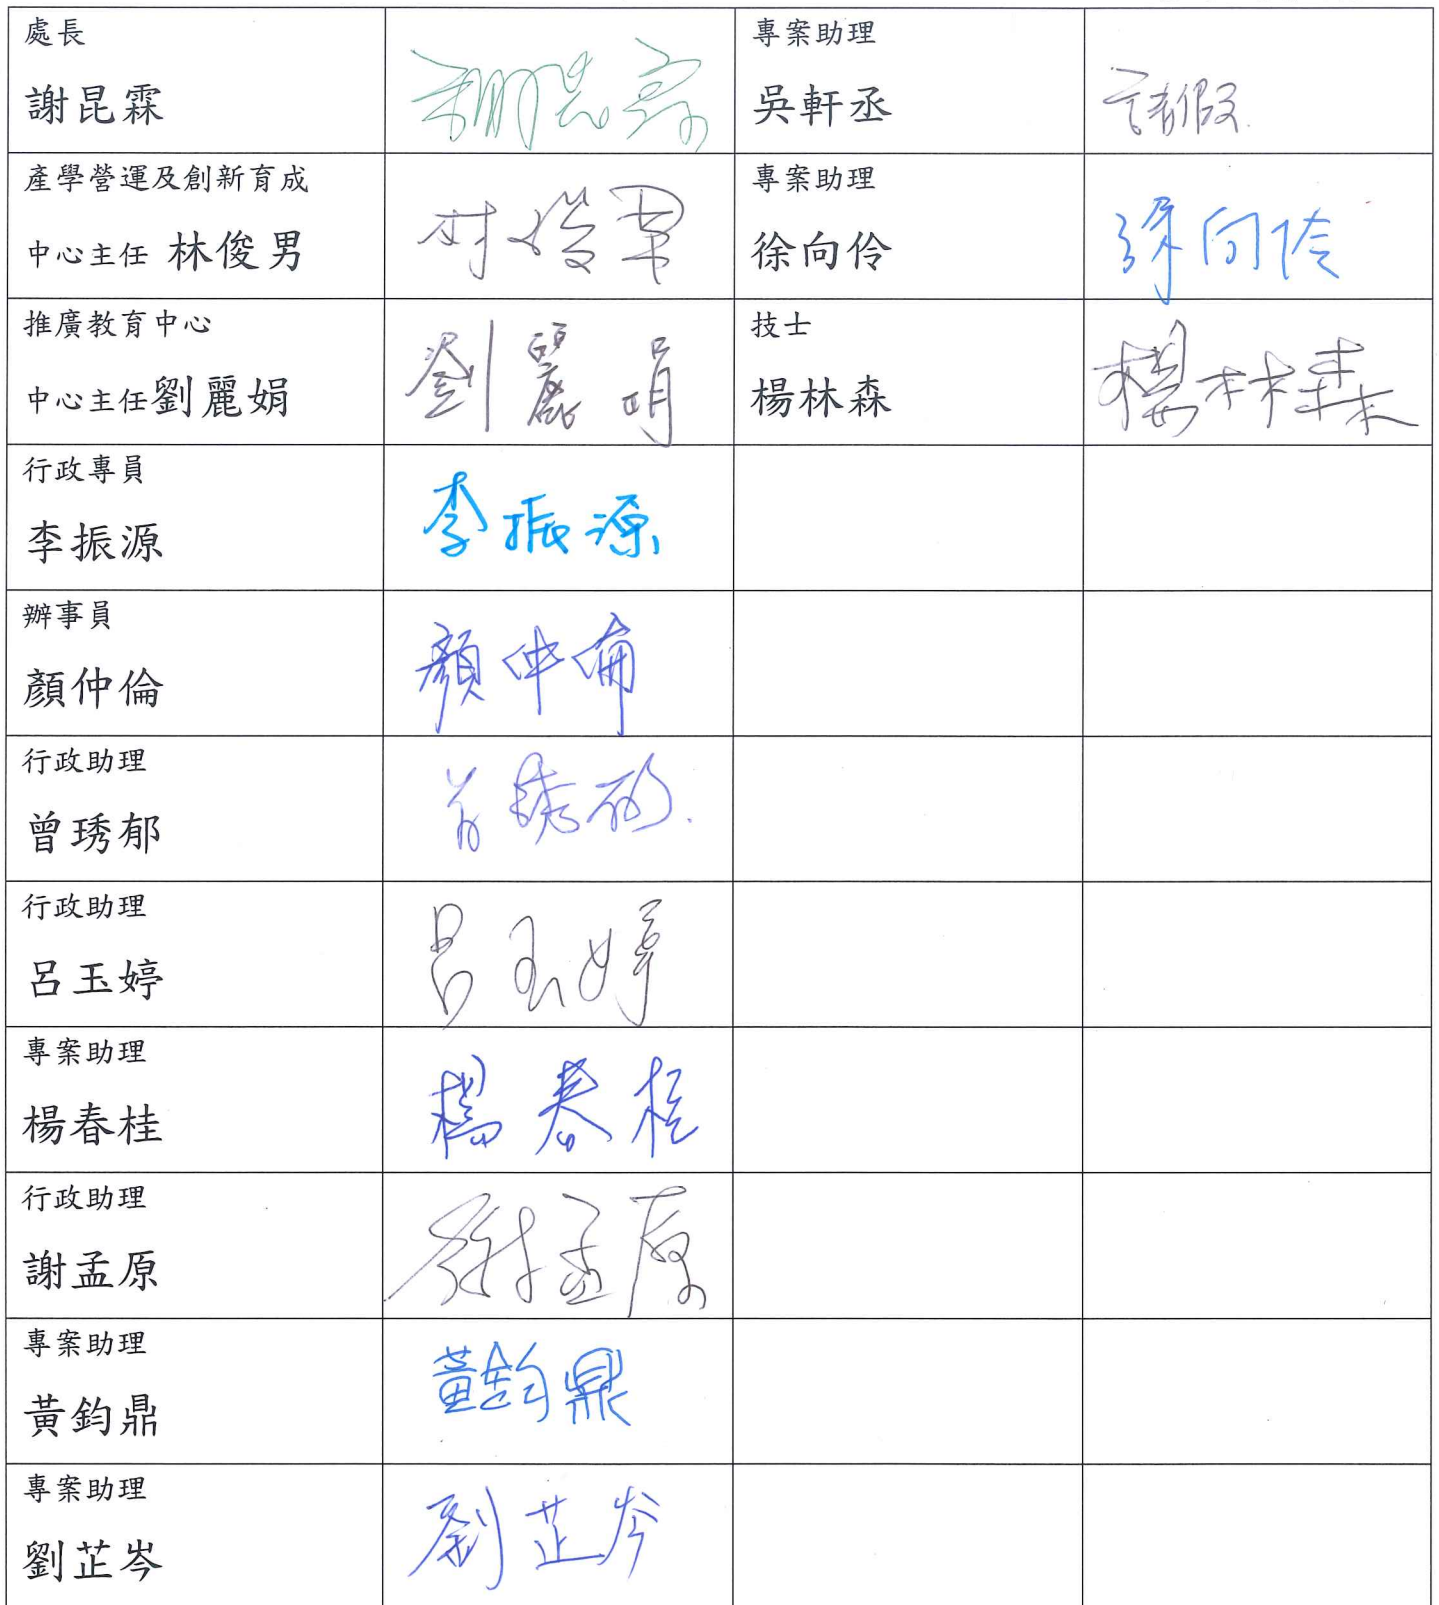 處長
謝昆霖
謝昆霖
專案助理
吳軒丞
請假.
產學營運及創新育成
中心主任 林俊男
林俊男
專案助理
徐向伶
徐向伶
推廣教育中心
中心主任劉麗娟
劉麗娟
技士
楊林森
楊林森
行政專員
李振源
李振源
辦事員
顏仲倫
顏仲倫
行政助理
曾琇郁
曾琇郁.
行政助理
呂玉婷
呂玉婷
專案助理
楊春桂
楊春桂
行政助理
謝孟原
謝孟原
專案助理
黃鈞鼎
黃鈞鼎
專案助理
劉芷岑
劉芷岑